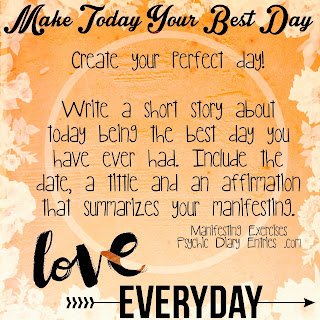 Make Today Your Best Day
Create your perfect day!
Write a short story about
today being the best day you
have ever had. Include the
date, a tittle and an affirmation
that summarizes your manifesting.
Manifesting Exercises
Psychic Diary Entries .com
love
EVERYDAY